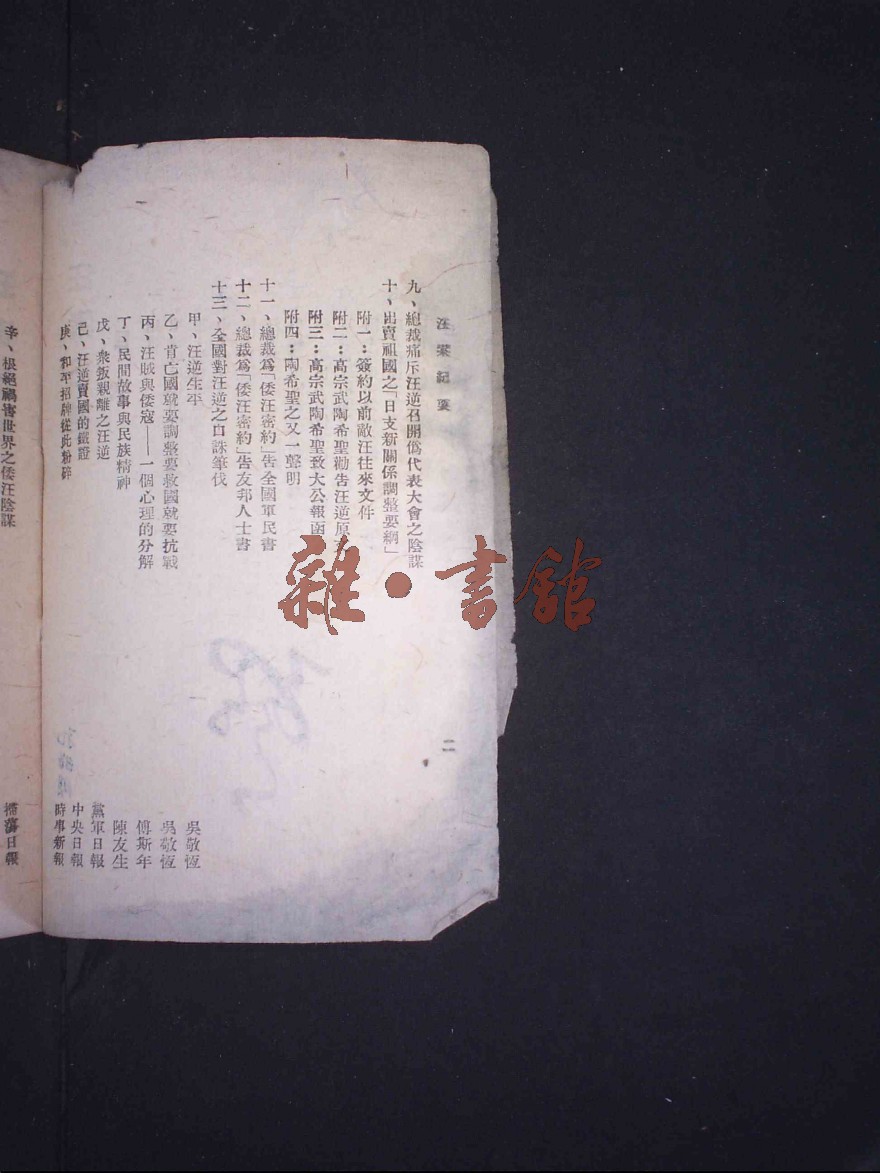 汪案紀要
二
九、總裁痛斥汪逆召開僞代表大會之陰謀
十、出賣祖國之「日支新關係調整要綱」
附一：簽約以前敵汪往來文件
附二：高宗武陶希聖勸告汪逆原
附三：高宗武陶希聖致大公報函
附四：陶希聖之又一聲明
十一、總裁爲「倭汪密約」告全國軍民書
十二、總裁爲「倭汪密約」告友邦人士書
十三、全國對汪逆之口誅筆伐
甲、汪逆生平 吳敬恆
乙、肯亡國就要調整要救國就要抗戰 吳敬恆
丙、汪賊與倭寇——一個心理的分解 傅斯年
丁、民間故事與民族精神 陳友生
戊、衆叛親離之汪逆 黨軍日報
己、汪逆賣國的鐵證 中央日報
庚、和平招牌從此粉碎 時事新報
辛、根絕禍害世界之倭汪陰謀 掃蕩日報
雜·書館